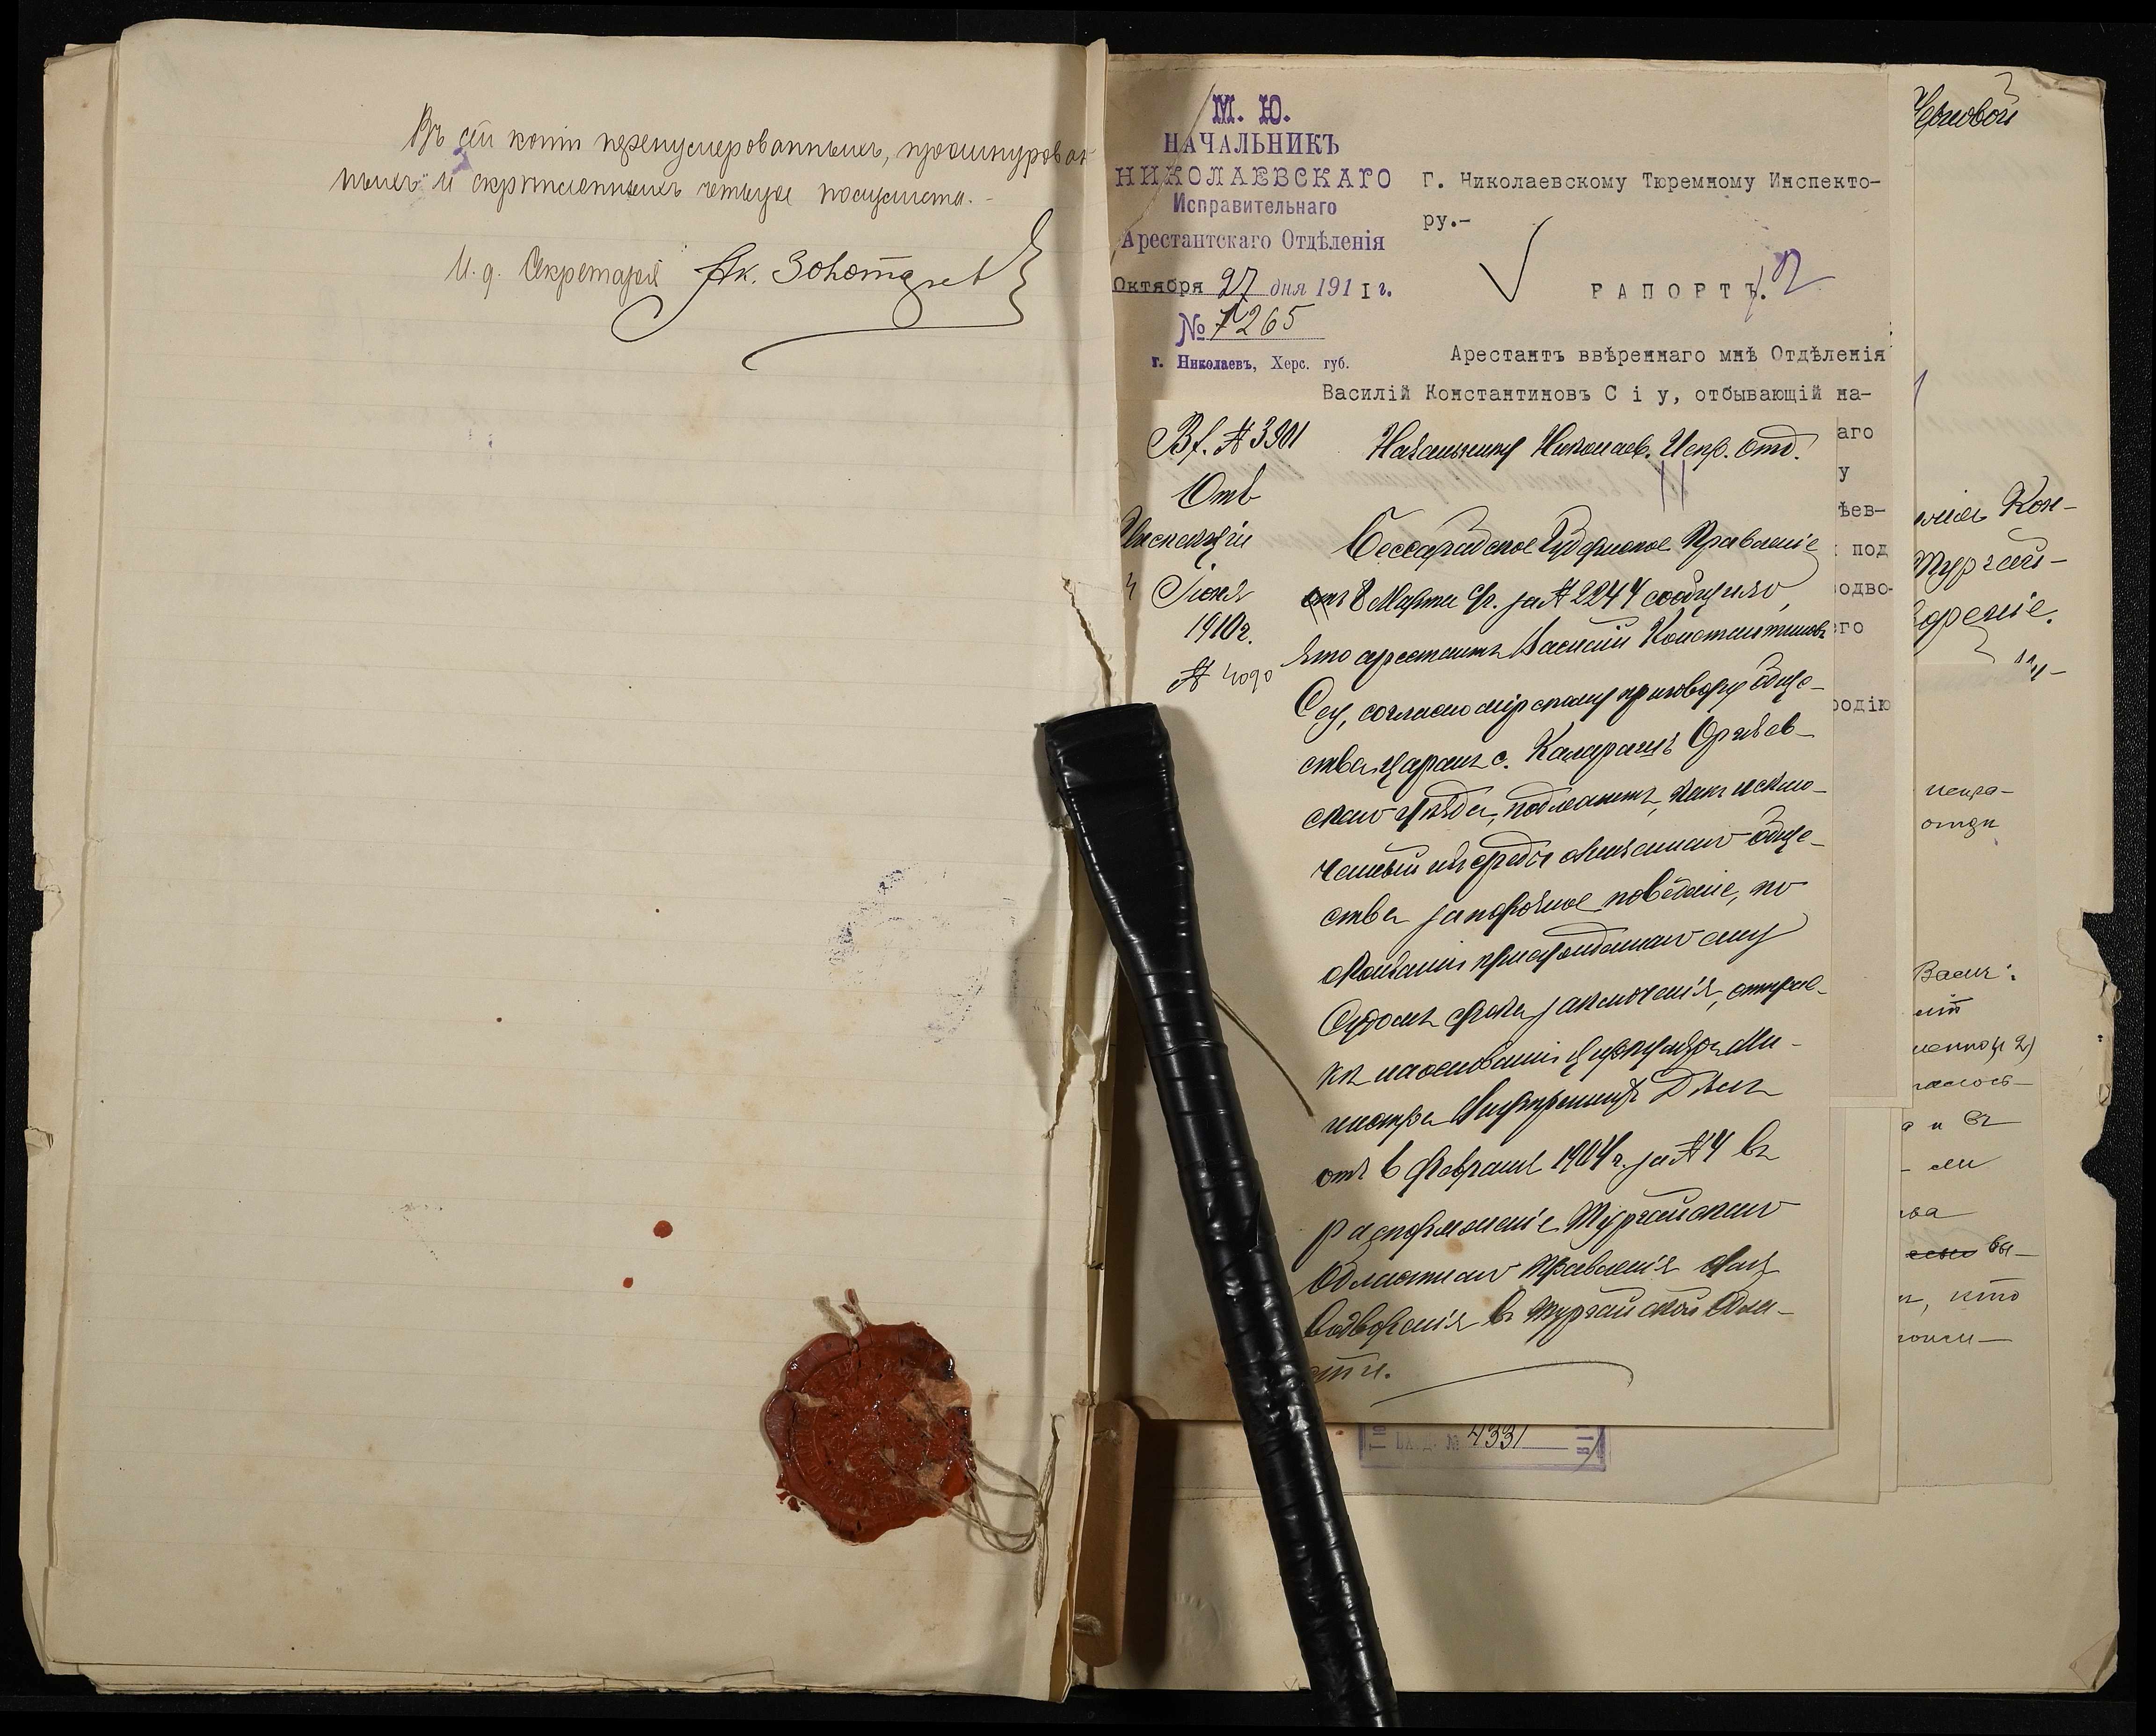 Въ сей копіи перенумерованныхъ, прошнурован
ныхъ и скрѣпленныхъ четыре полулиста.-
И. д. Секретаря Ак. Золотарев
М. Ю.
НАЧАЛЬНИКЪ
НИКОЛАЕВСКАГО
Исправительнаго
Арестантскаго Отдѣленія
Октября 27 дня 1911 г.
№ 7265
г. Николаевъ, Херс. губ.
Г. Николаевскому Тюремному Инспекто-
ру.-
РАПОРТЪ.
Арестантъ ввѣреннаго мнѣ Отдѣленія
Василій Константиновъ С і у, отбывающій на-
аго
у
ѣев-
под
одво-
го
родію
Вх. № 3901
Отв
Инспекціи
4 Іюня
1910 г.
№ 4090
Начальнику Николаев. Испр. отд.
Бессарабское Губернское Правленіе
отъ 8 Марта с/г. за № 2244 сообщило,
что арестантъ Василій Константиновъ
Сеу, согласно мірскому приговору обще-
ства царанъ с. Калараш Оргѣев-
скаго уѣзда, подлежитъ, какъ исклю-
ченный изъ среды означеннаго обще-
ства за порочное поведеніе, по
окончаніи присужденнаго ему
Судомъ срока заключенія, отправ-
кѣ на основаніи циркуляра Ми-
нистра Внутреннихъ Дѣлъ
отъ 6 Февраля 1904 г. за № 4 въ
распоряженіе Тургайскаго
Областнаго Правленія для
водворенія въ Тургайской Обла-
сти.
ВХОД. № 4331
Черновой
Кон-
Тургай-
воренiе.
испра-
отдн
Васил:
а и въ
вы-
кто